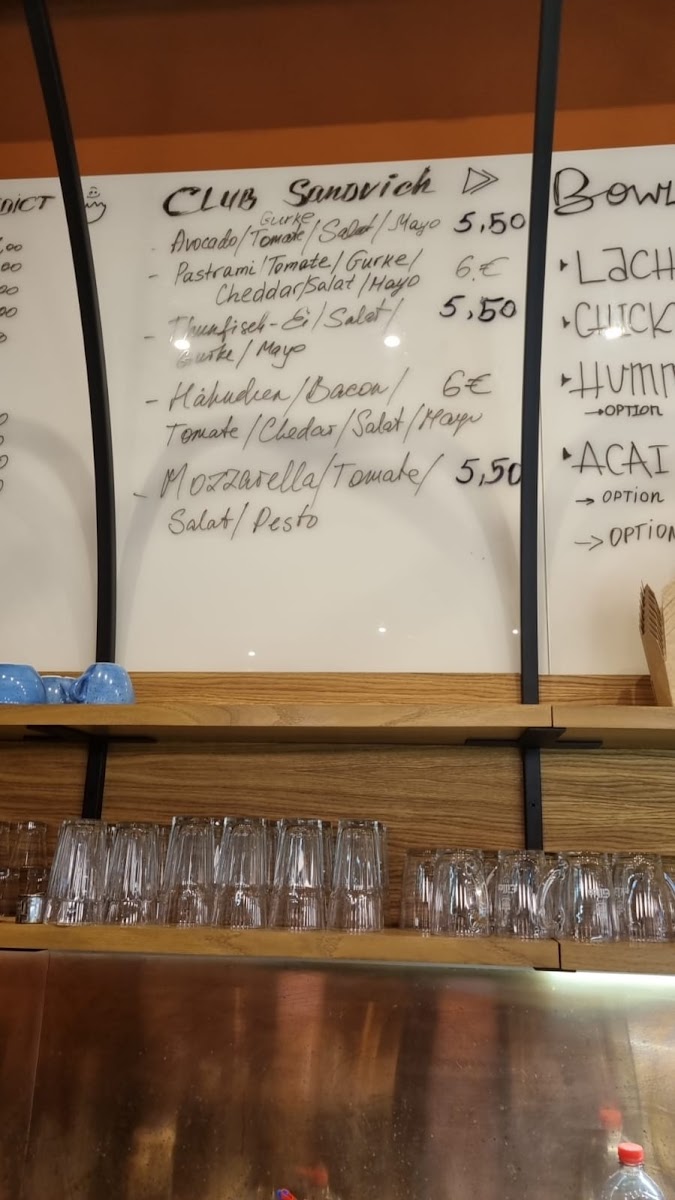 DICT
CLUB Sandvich
Gurke
Avocado/Tomate/Salat/Mayo 5,50
- Pastrami/Tomate/Gurke/ 6.€
Cheddar/Salat/Mayo
- Thunfisch-Ei/Salat/ 5,50
Gurke/Mayo
- Hähnchen/Bacon/ 6€
Tomate/Chedar/Salat/Mayo
- Mozzarella/Tomate/ 5,50
Salat/Pesto
Bowl
LACH
CHICK
HUMM
→OPTION
ACAI
→ OPTION
→ OPTION